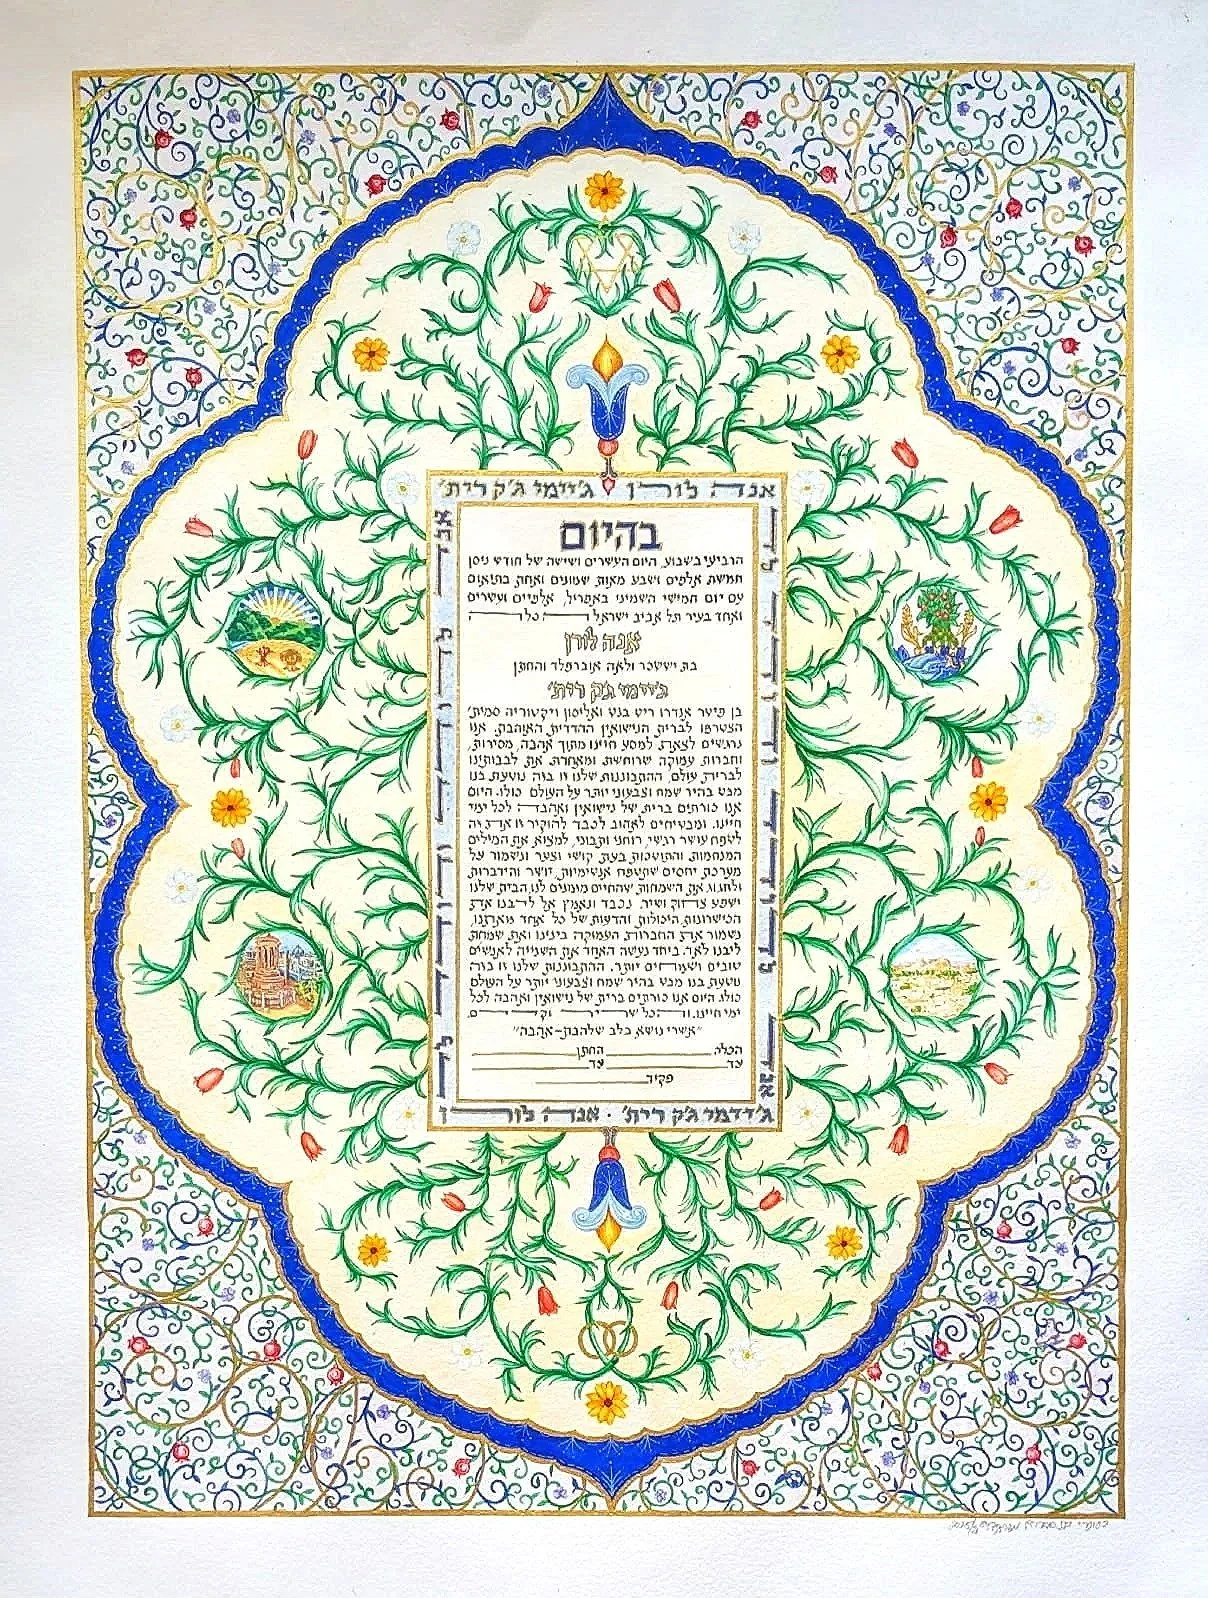 אנה לורן ג'יימי ג'ק רית'
בהיום
הרביעי בשבוע, היום העשרים ושישה של חודש ניסן
חמשת אלפים ושבע מאות שמונים ואחת בתואם
עם יום חמישי השמיני באפריל, אלפיים ועשרים
ואחד בעיר תל אביב ישראל הכלה
אנה לורן
בת יששכר ולאה אוברפלד והחתן
ג'יימי ג'ק רית'
בן פיטר אנדרו ריט בנט ואליסון ויקטוריה סמית,
הצטרפו לברית הנישואין ההדדית האוהבת. אנו
נרגשים לצאת למסע חיינו מתוך אהבה, מסירות,
וחברות עמוקה שרוחשת ומאחדת את לבבותינו
לברית עולם. ההתבוננות שלנו זו בזה נוטעת בנו
מבט בהיר שמח וצבעוני יותר על העולם כולו. היום
אנו כורתים ברית של נישואין ואהבה לכל ימי
חיינו. ומבטיחים לאהוב לכבד להוקיר זו את זה
לטפח עושר רגשי, רוחני ותבוני, למצוא את המילים
המנחמות והתומכות בעת קושי וצער ונשמור על
מערכת יחסים שתטפח אנושיות, יושר והידברות
ולחגוג את השמחות שהחיים מזמנים לנו. הבית שלנו
ישפע צחוק ושיר. נכבד ונאמץ אל ליבנו את
הכישרונות היכולות והדעות של כל אחד מאתנו,
נשמור את החברות העמוקה בינינו ואת שמחת
ליבנו לאה. ביחד נעשה האחד את השנייה לאנשים
טובים ושמחים יותר. ההתבוננות שלנו זו בזה
נוטעת בנו מבט בהיר שמח וצבעוני יותר על העולם
כולו. היום אנו כורתים ברית של נישואין ואהבה לכל
ימי חיינו. והכל שריר וקיים.
"אשרי נושא בלב שלהבת-אהבה"
הכלה החתן
עד עד
פקיד
ג'יימי ג'ק רית' · אנה לורן